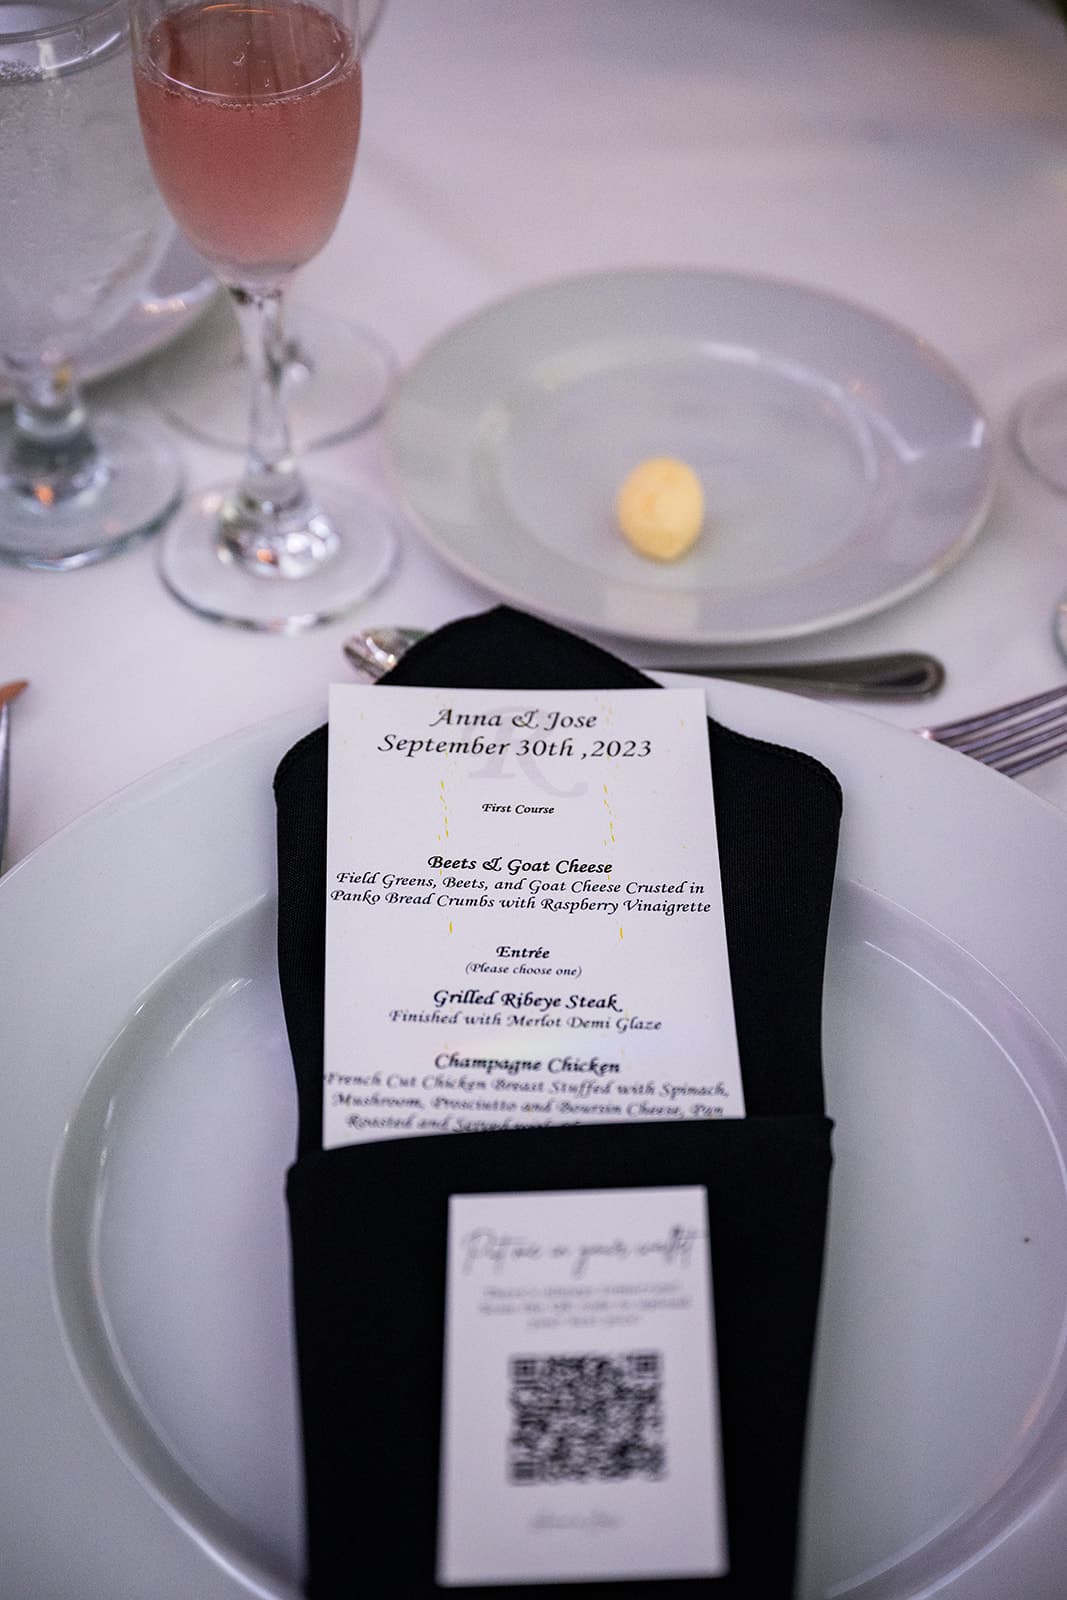 Anna & Jose
September 30th ,2023
R
First Course
Beets & Goat Cheese
Field Greens, Beets, and Goat Cheese Crusted in
Panko Bread Crumbs with Raspberry Vinaigrette
Entrée
(Please choose one)
Grilled Ribeye Steak
Finished with Merlot Demi Glaze
Champagne Chicken
French Cut Chicken Breast Stuffed with Spinach,
Mushroom, Prosciutto and Boursin Cheese, Pan
Roasted and Served
Put me in your wallet